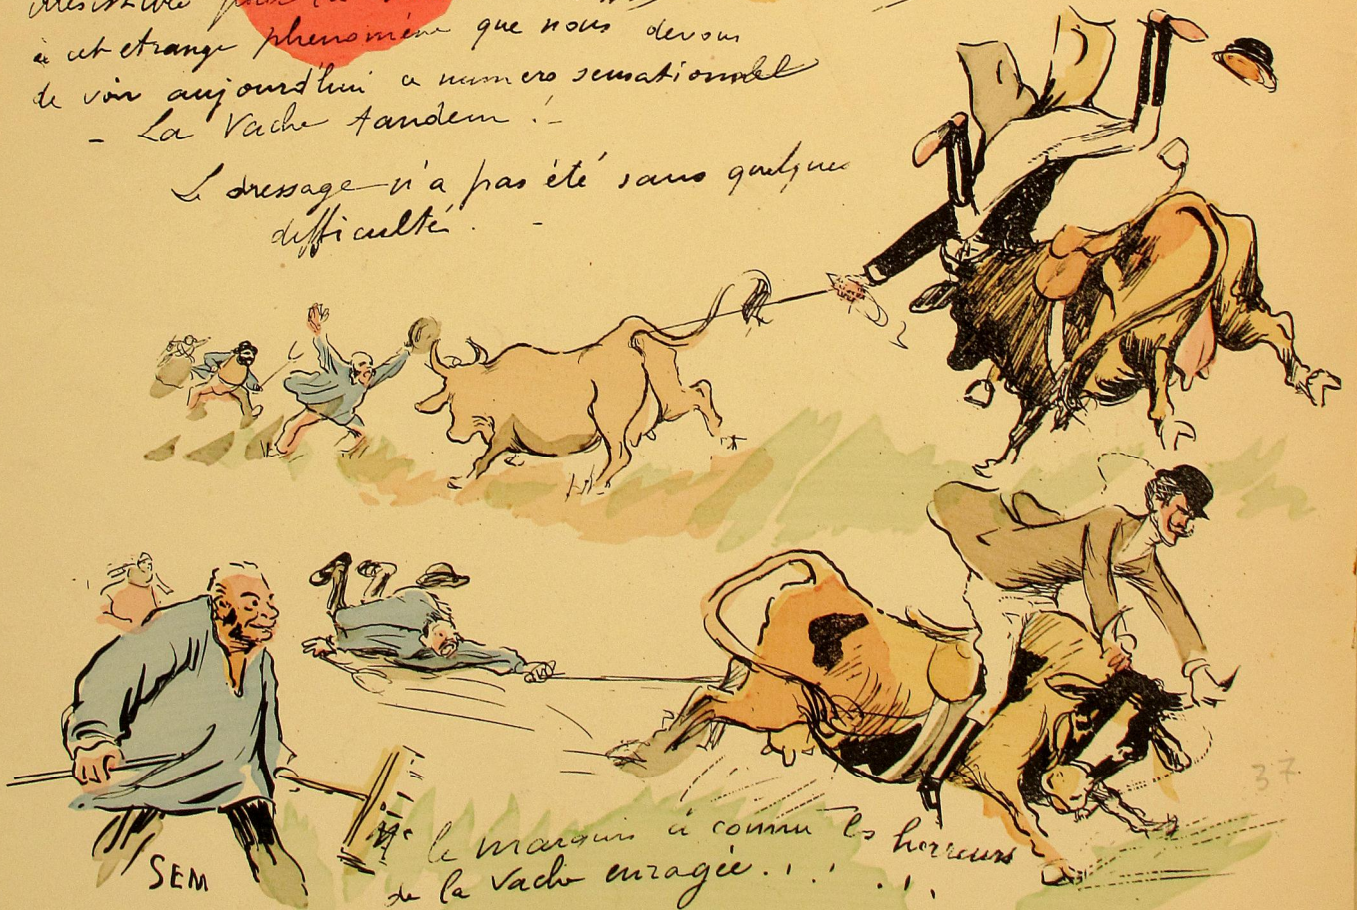 irrésistible par la
à cet étrange phénomène que nous devons
de voir aujourd'hui ce numéro sensationnel
- La Vache tandem ! -
Le dressage n'a pas été sans quelques
difficulté. -
37.
Mr le marquis a connu les horreurs
de la vache enragée. . ! . . ! .
SEM